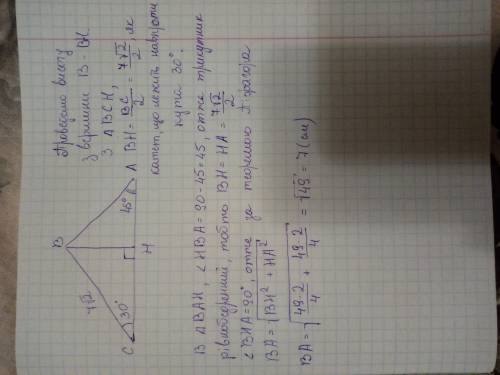 Проведемо висоту
з вершини B - BH.
З △BCH,
BH = BC/2 = 7√2/2, як
катет, що лежить навпроти
кута 30°.
B
7√2
30°
45°
C
H
A
В △BAH, ∠HBA = 90-45=45, отже трикутник
рівнобедрений, тобто BH = HA = 7√2/2
∠BHA=90°, отже за теоремою Піфагора
BA = √BH² + HA²
BA = √49·2/4 + 49·2/4 = √49 = 7 (см)